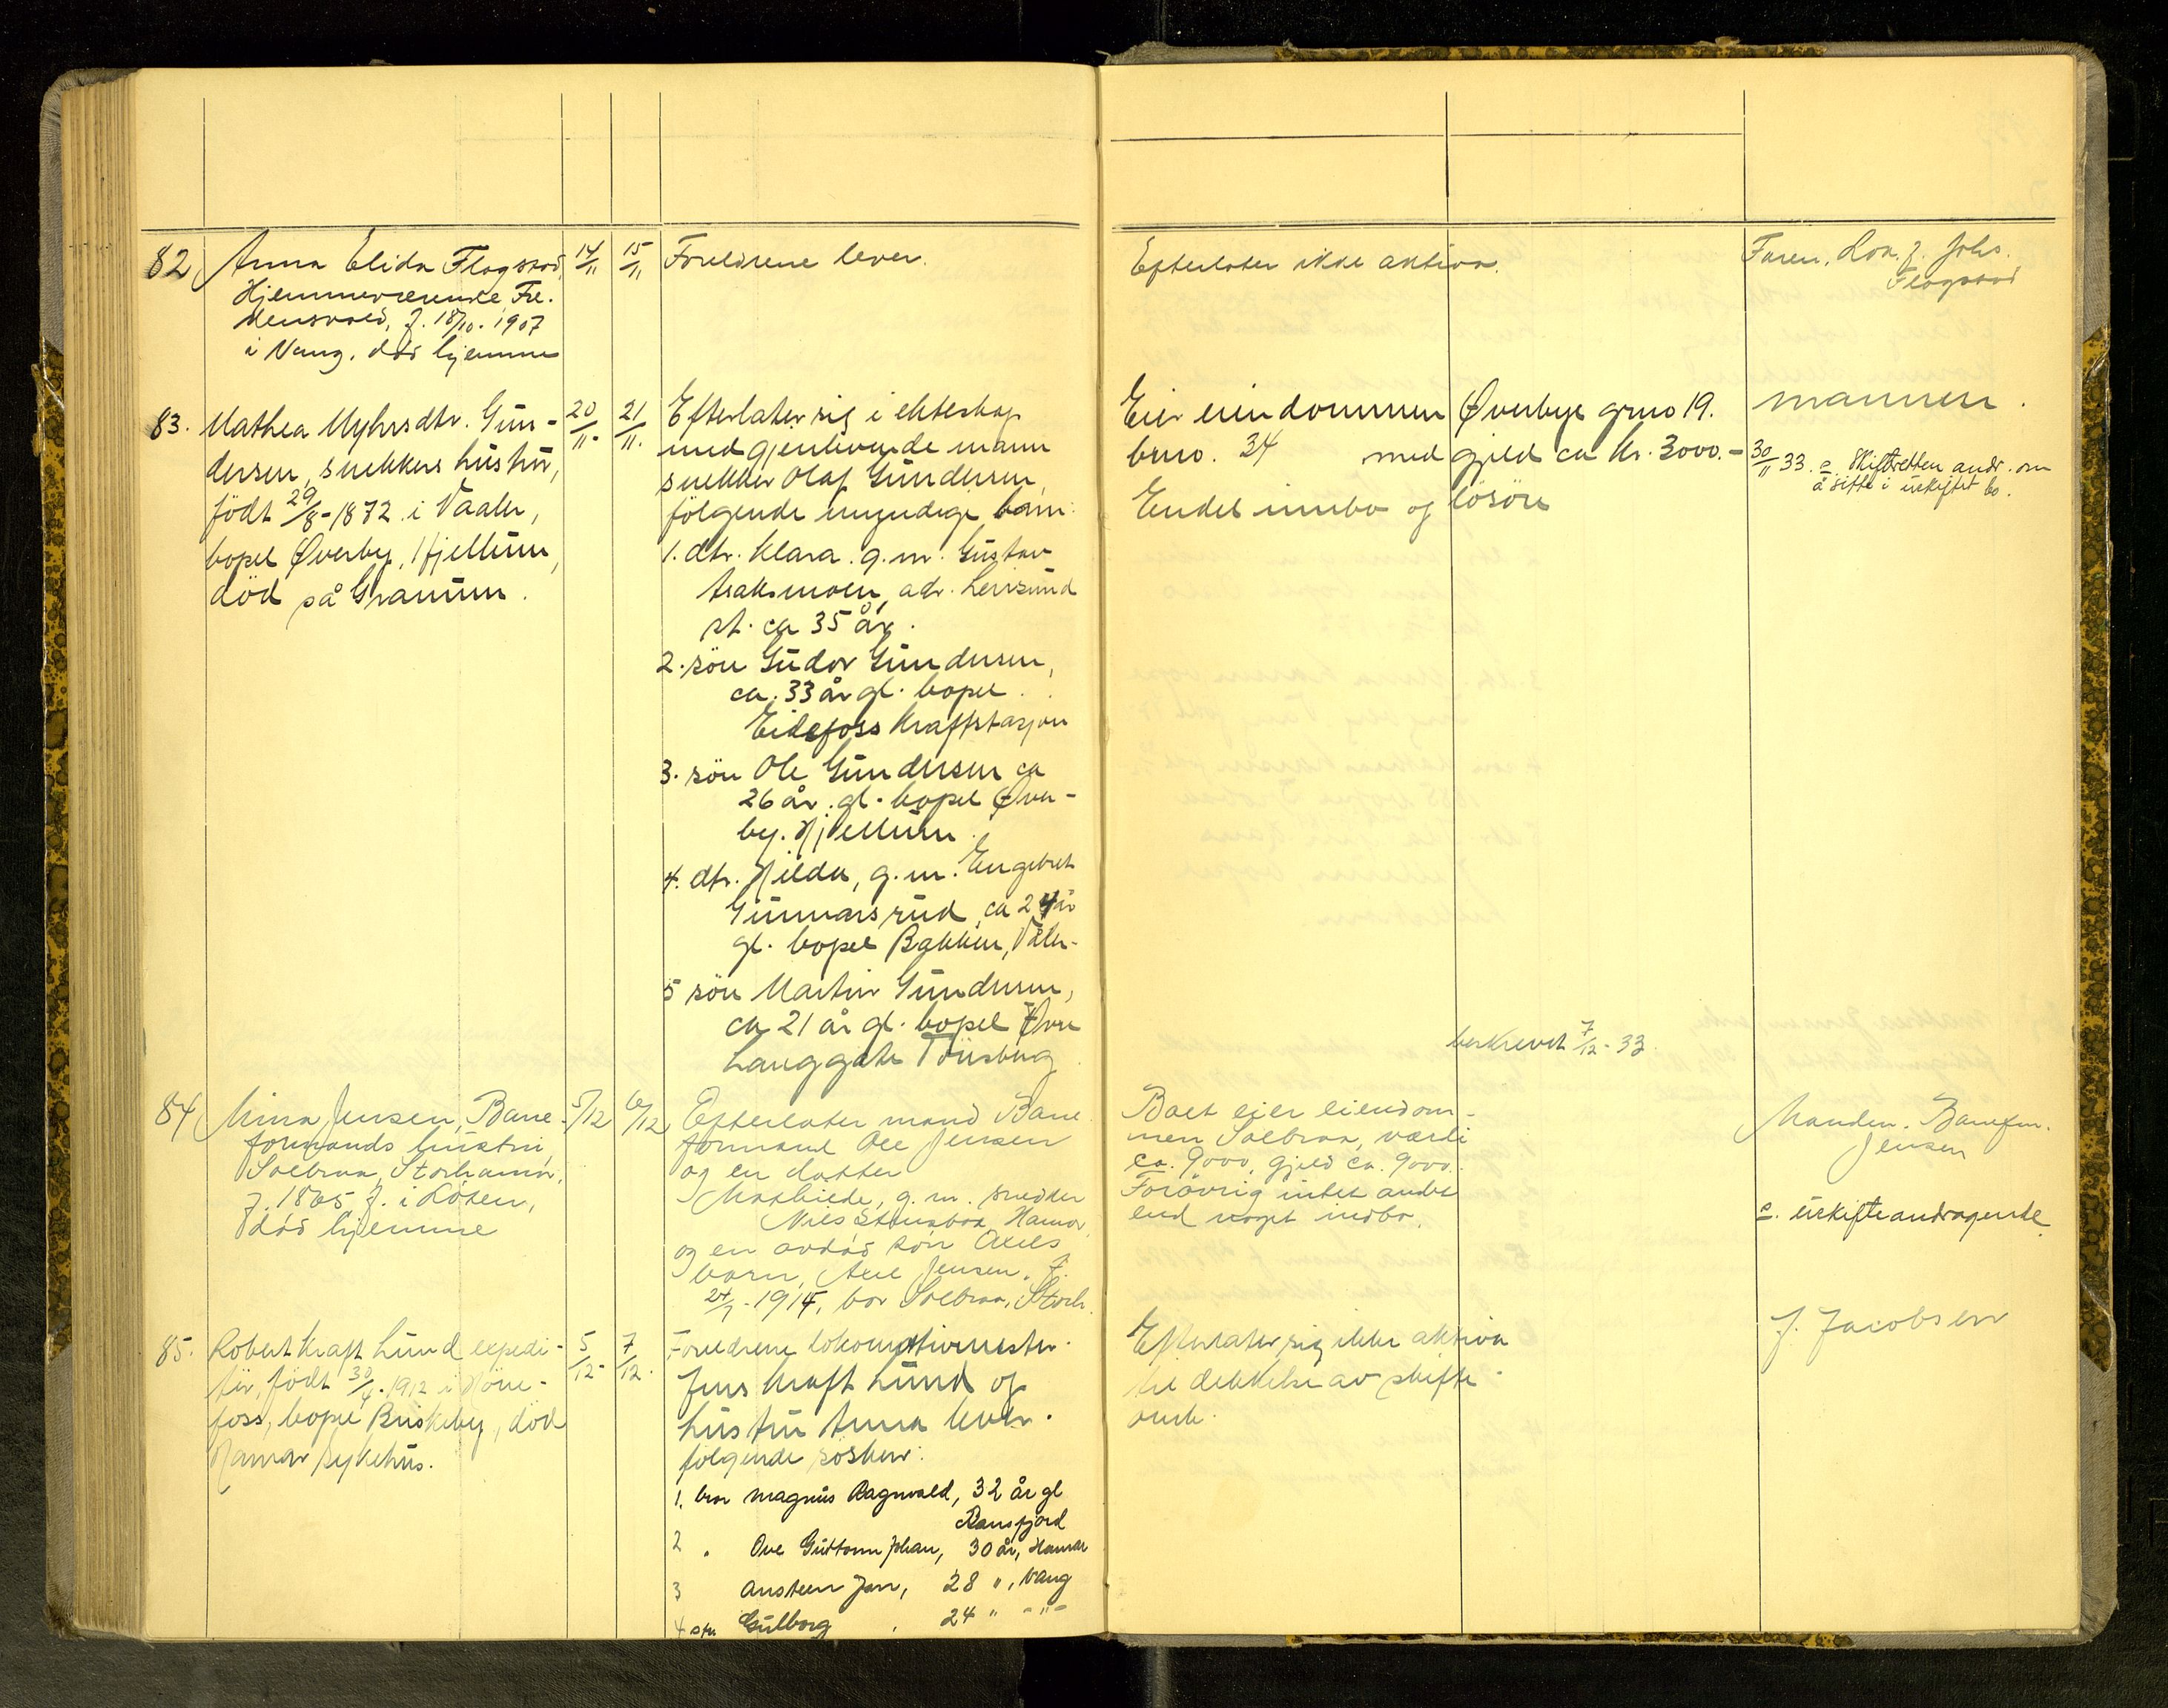 82
Anna Elida Flagstad,
Hjemmeværende, Fre-
densvold, f. 18/10. 1907
i Vang, död hjemme
14/11
15/11
Foreldrene lever.
Efterlater ikke aktiva.
Faren, Lok.f. Johs.
Flagstad
83.
Mathea Myhrsdtr. Gun-
dersen, snekkers hustru,
födt 29/8-1872 i Vaaler,
bopel Øverby, Hjellum,
död på Granum.
20/11-
21/11.
Efterlater sig i ekteskap
med gjenlevende mann
snekker Olaf Gundersen,
fölgende myndige barn:
1. dtr. Klara. g.m. Gustav
adr.
st. ca 35 år.
2. sön Gudor Gundersen,
ca. 33 år gl. bopel
Eidefoss Kraftstasjon
3. sön Ole Gundersen ca
26 år. gl. bopel Øver-
by. Hjellum.
4. dtr. Hilda, g.m. Engebret
Gunnarsrud, ca 24 år
gl. bopel Bakken, Våler.
5 sön Martin Gundersen,
ca 21 år gl. bopel Øvre
Langgate Tönsberg
Eier eiendommen Øverbye grno 19.
brno. 34 med gjeld ca kr. 3000.-
Endel innbo og lösöre
mannen.
30/11 33. e. Skifteretten andr. om
å sitte i uskiftet bo.
beskrevet 7/12-33.
84
Mina Jensen, Bane-
formands hustru,
Solbraa, Storhamar,
f. 1865 f. i Löten,
död hjemme
5/12
6/12
Efterlater mand Bane
formand Ole Jensen
og en datter
Mathilde, g.m. smeden
Nils Stensbak, Hamar
og en avdöd sön Axels
barn, Axel Jensen, f.
24/7-1914, bor Solbraa, Storh.
Boet eier eiendom-
men Solbraa, værdi
ca. 9000, gjeld ca. 9000.
Foröverig intet andet
end noget indbo.
Manden. Banefm.
Jensen
e. uskifteandragende
85.
Robert Kraft Lund expedi-
tör, födt 30/4-1912 i Höne-
foss, bopel Briskeby, död
Hamar sykehus.
5/12-
7/12.
Foreldrene lokomotivmester
Jens Kraft Lund og
hustru Anna lever.
fölgende söskend:
1. bror Magnus Ragnvald, 32 år gl
Ransfjord
2 " Ove Guttorm Johan, 30 år, Hamar
3 Austeen Jan, 28 ", Vang
4 str. Gulborg 24 " -"-
Efterlater sig ikke aktiva
til dekkelse av skifte-
omk.
J. Jacobsen